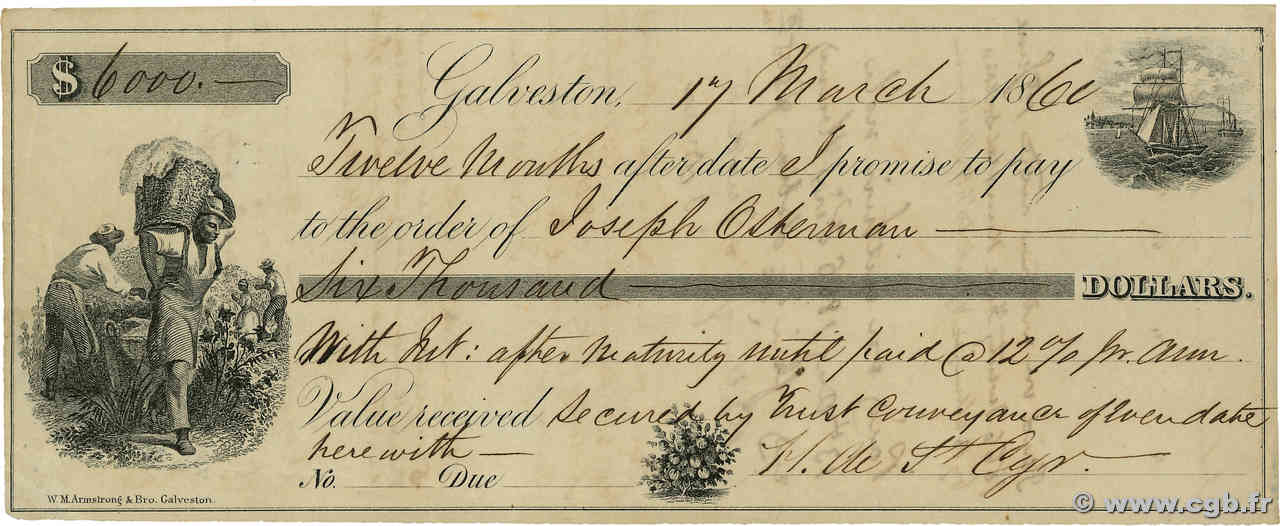 $ 6000.—
Galveston, 17 March 1860
Twelve Months after date I promise to pay
to the order of Joseph Osterman
Six Thousand DOLLARS.
With Int: after maturity until paid @ 12 % pr. Ann.
Value received Secured by Trust Conveyance of even date
herewith —
H. de St Cyr.
No. Due
W.M. Armstrong & Bro. Galveston.
© www.cgb.fr